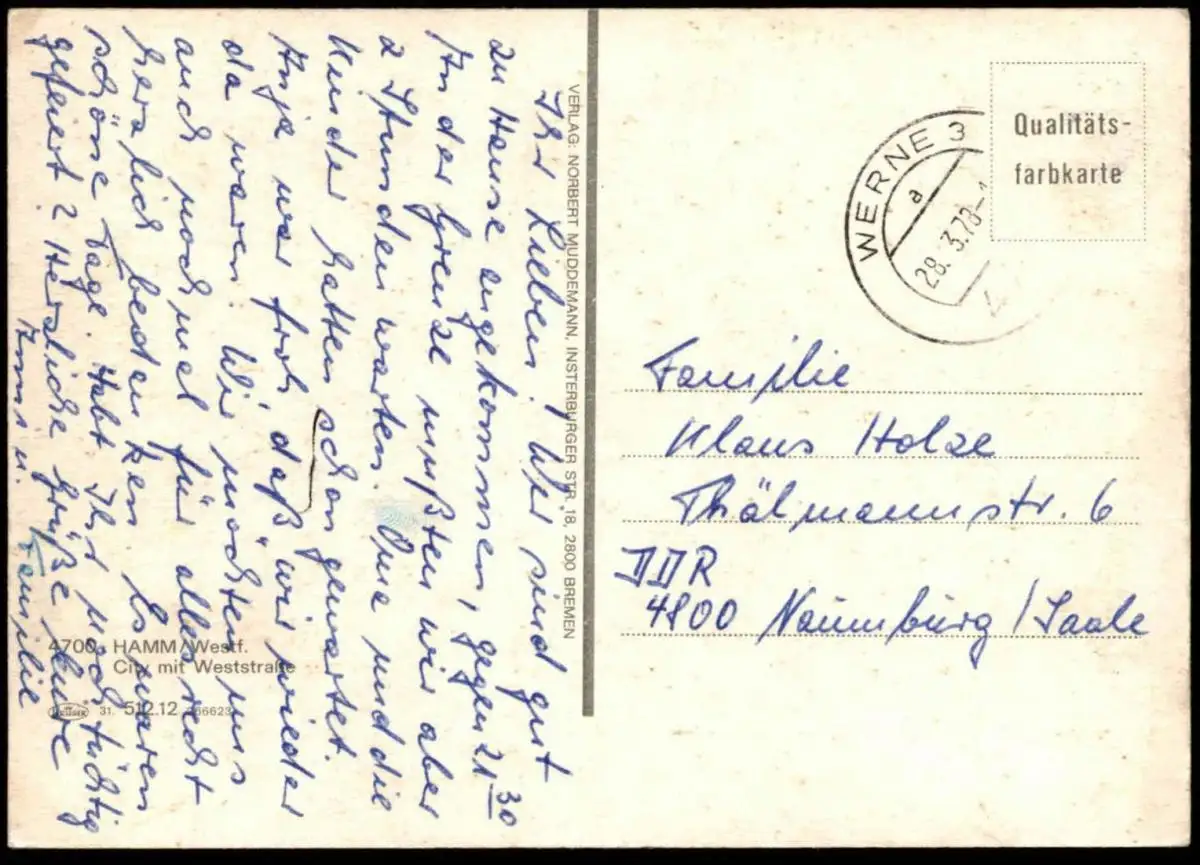 Ihr Lieben! Wir sind gut
zu Hause angekommen, gegen 21 30
An der Grenze mußten wir aber
2 Stunden warten. Oma und die
Kinder hatten schon gewartet.
Anja war froh, daß wir wieder
da waren. Wir möchten uns
auch nochmal für alles recht
herzlich bedanken. Es waren
schöne Tage. Habt Ihr noch tüchtig
gefeiert? Herzliche Grüße Eure
Anni u. Familie
VERLAG: NORBERT MUDDEMANN, INSTERBURGER STR. 18, 2800 BREMEN
4700 HAMM/Westf.
City mit Weststraße
31. 512.12 266623
Qualitäts-
farbkarte
WERNE 3
a
28.3.78-
Familie
Klaus Holze
Thälmannstr. 6
DDR
4800 Naumburg/Saale